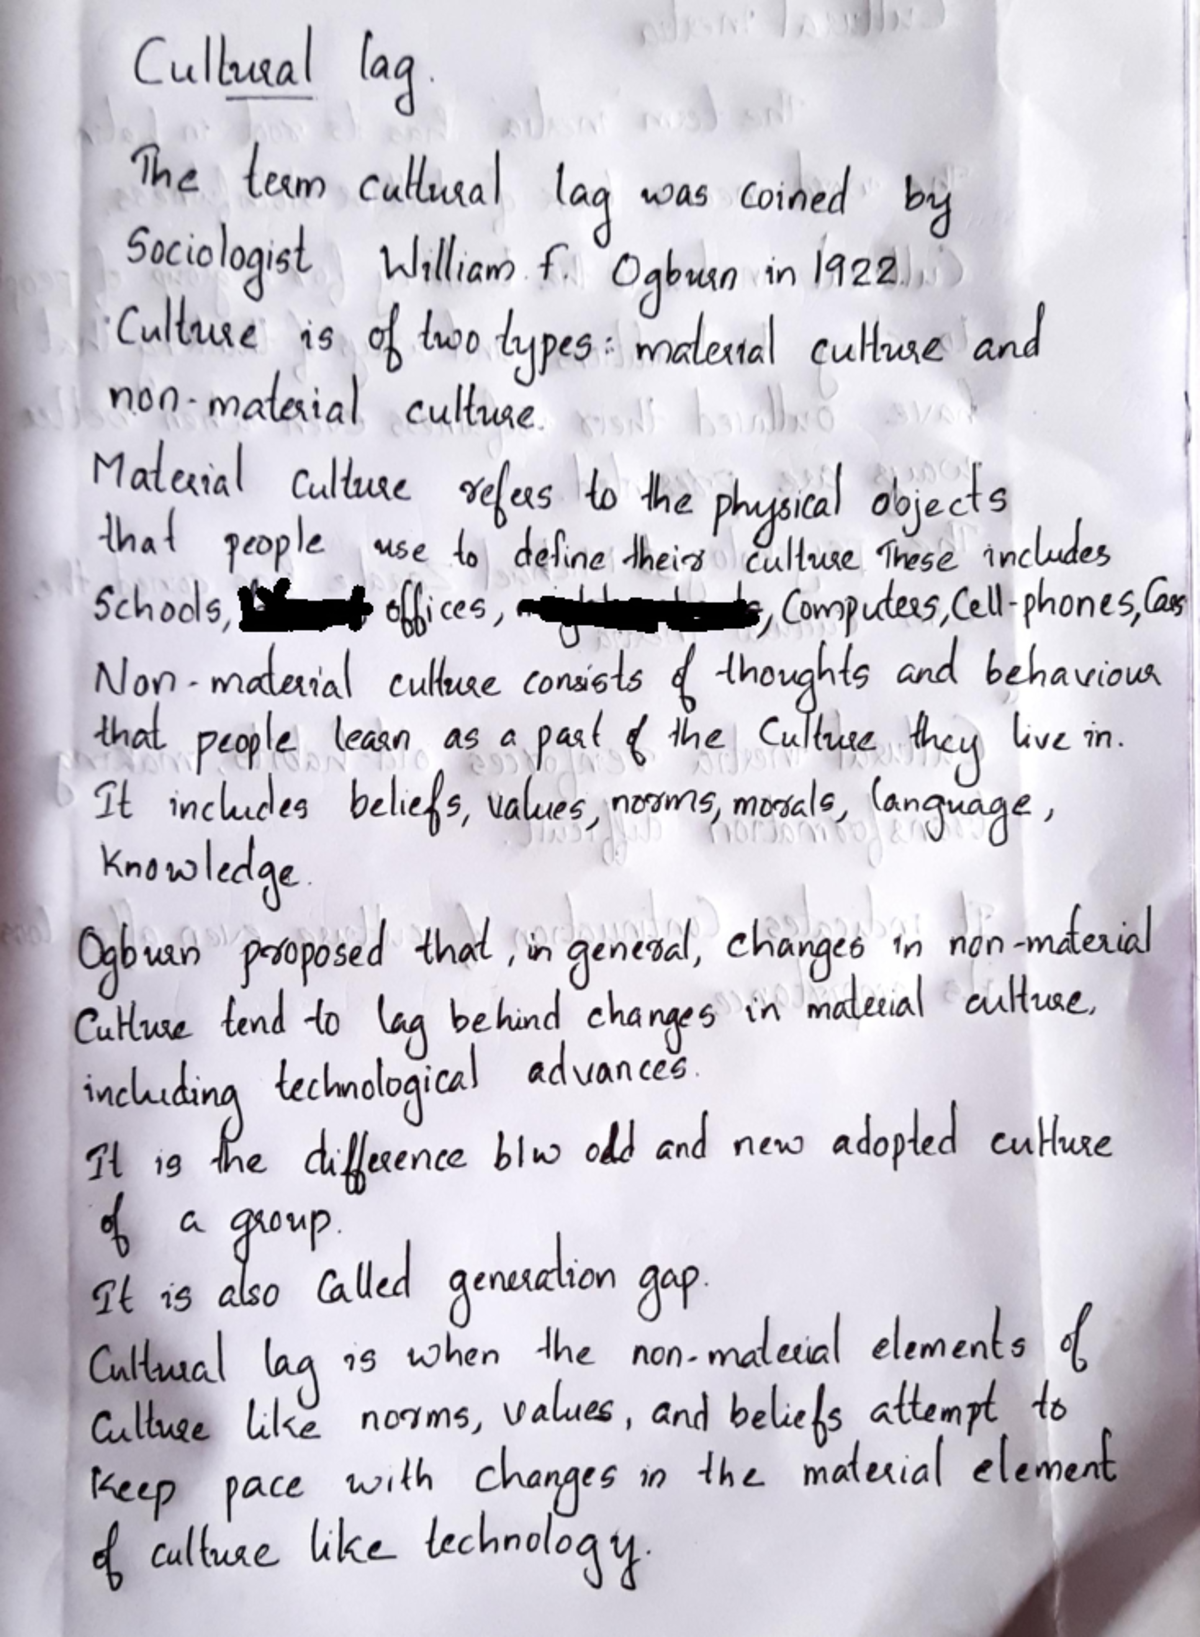 Cultural lag.
The term cultural lag was coined by
Sociologist William f. Ogburn in 1922.
Culture is of two types: material culture and
non-material culture.
Material culture refers to the physical objects
that people use to define their culture These includes
Schools, offices, , Computers, Cell-phones, Cars
Non-material culture consists of thoughts and behaviour
that people learn as a part of the Culture they live in.
It includes beliefs, values, norms, morals, language,
Knowledge.
Ogburn proposed that, in general, changes in non-material
Culture tend to lag behind changes in material culture,
including technological advances.
It is the difference b/w old and new adopted culture
of a group.
It is also Called generation gap.
Cultural lag is when the non-material elements of
Culture like norms, values, and beliefs attempt to
Keep pace with changes in the material element
of culture like technology.